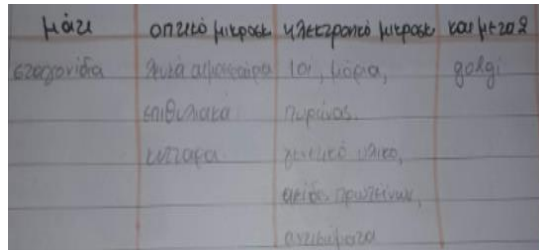 μάτι οπτικό μικροσκ ηλεκτρονικό μικροσκ και με τα 2
σταγονίδια λευκά αιμοσφαίρια ιοί, μόρια, golgi
επιθηλιακά πυρήνας
κύτταρα γενετικό υλικό,
πρωτεινων,
αντισώματα